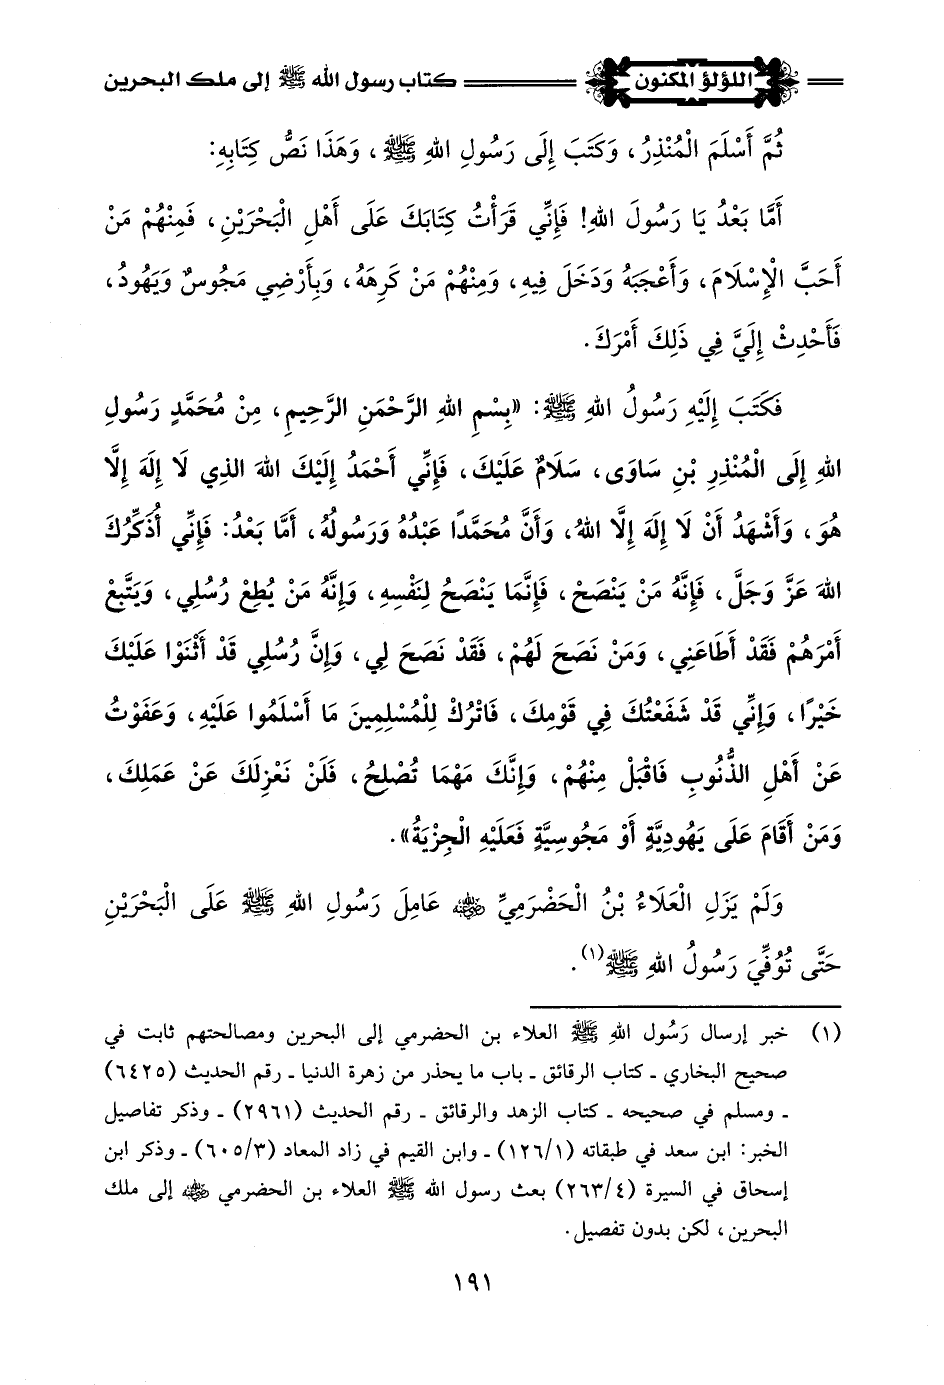 اللؤلؤ المكنون كتاب رسول الله ﷺ إلى ملك البحرين
ثُمَّ أَسْلَمَ الْمُنْذِرُ، وَكَتَبَ إِلَى رَسُولِ اللهِ ﷺ، وَهَذَا نَصُّ كِتَابِهِ:
أَمَّا بَعْدُ يَا رَسُولَ اللهِ! فَإِنِّي قَرَأْتُ كِتَابَكَ عَلَى أَهْلِ الْبَحْرَيْنِ، فَمِنْهُمْ مَنْ
أَحَبَّ الْإِسْلَامَ، وَأَعْجَبَهُ وَدَخَلَ فِيهِ، وَمِنْهُمْ مَنْ كَرِهَهُ، وَبِأَرْضِي مَجُوسٌ وَيَهُودُ،
فَأَحْدِثْ إِلَيَّ فِي ذَلِكَ أَمْرَكَ.
فَكَتَبَ إِلَيْهِ رَسُولُ اللهِ ﷺ: «بِسْمِ اللهِ الرَّحْمَنِ الرَّحِيمِ، مِنْ مُحَمَّدٍ رَسُولِ
اللهِ إِلَى الْمُنْذِرِ بْنِ سَاوَى، سَلَامٌ عَلَيْكَ، فَإِنِّي أَحْمَدُ إِلَيْكَ اللهَ الذِي لَا إِلَهَ إِلَّا
هُوَ، وَأَشْهَدُ أَنْ لَا إِلَهَ إِلَّا اللهُ، وَأَنَّ مُحَمَّدًا عَبْدُهُ وَرَسُولُهُ، أَمَّا بَعْدُ: فَإِنِّي أُذَكِّرُكَ
اللهَ عَزَّ وَجَلَّ، فَإِنَّهُ مَنْ يَنْصَحْ، فَإِنَّمَا يَنْصَحُ لِنَفْسِهِ، وَإِنَّهُ مَنْ يُطِعْ رُسُلِي، وَيَتَّبِعْ
أَمْرَهُمْ فَقَدْ أَطَاعَنِي، وَمَنْ نَصَحَ لَهُمْ، فَقَدْ نَصَحَ لِي، وَإِنَّ رُسُلِي قَدْ أَثْنَوْا عَلَيْكَ
خَيْرًا، وَإِنِّي قَدْ شَفَعْتُكَ فِي قَوْمِكَ، فَاتْرُكْ لِلْمُسْلِمِينَ مَا أَسْلَمُوا عَلَيْهِ، وَعَفَوْتُ
عَنْ أَهْلِ الذُّنُوبِ فَاقْبَلْ مِنْهُمْ، وَإِنَّكَ مَهْمَا تُصْلِحُ، فَلَنْ نَعْزِلَكَ عَنْ عَمَلِكَ،
وَمَنْ أَقَامَ عَلَى يَهُودِيَّةٍ أَوْ مَجُوسِيَّةٍ فَعَلَيْهِ الْجِزْيَةُ».
وَلَمْ يَزَلِ الْعَلَاءُ بْنُ الْحَضْرَمِيِّ رضي الله عنه عَامِلَ رَسُولِ اللهِ ﷺ عَلَى الْبَحْرَيْنِ
حَتَّى تُوُفِّيَ رَسُولُ اللهِ ﷺ(١).
(١) خبر إرسال رَسُول اللهِ ﷺ العلاء بن الحضرمي إلى البحرين ومصالحتهم ثابت في
صحيح البخاري ـ كتاب الرقائق ـ باب ما يحذر من زهرة الدنيا ـ رقم الحديث (٦٤٢٥)
ـ ومسلم في صحيحه ـ كتاب الزهد والرقائق ـ رقم الحديث (٢٩٦١) ـ وذكر تفاصيل
الخبر: ابن سعد في طبقاته (١٢٦/١) ـ وابن القيم في زاد المعاد (٦٠٥/٣) ـ وذكر ابن
إسحاق في السيرة (٢٦٣/٤) بعث رسول الله ﷺ العلاء بن الحضرمي رضي الله عنه إلى ملك
البحرين، لكن بدون تفصيل.
١٩١